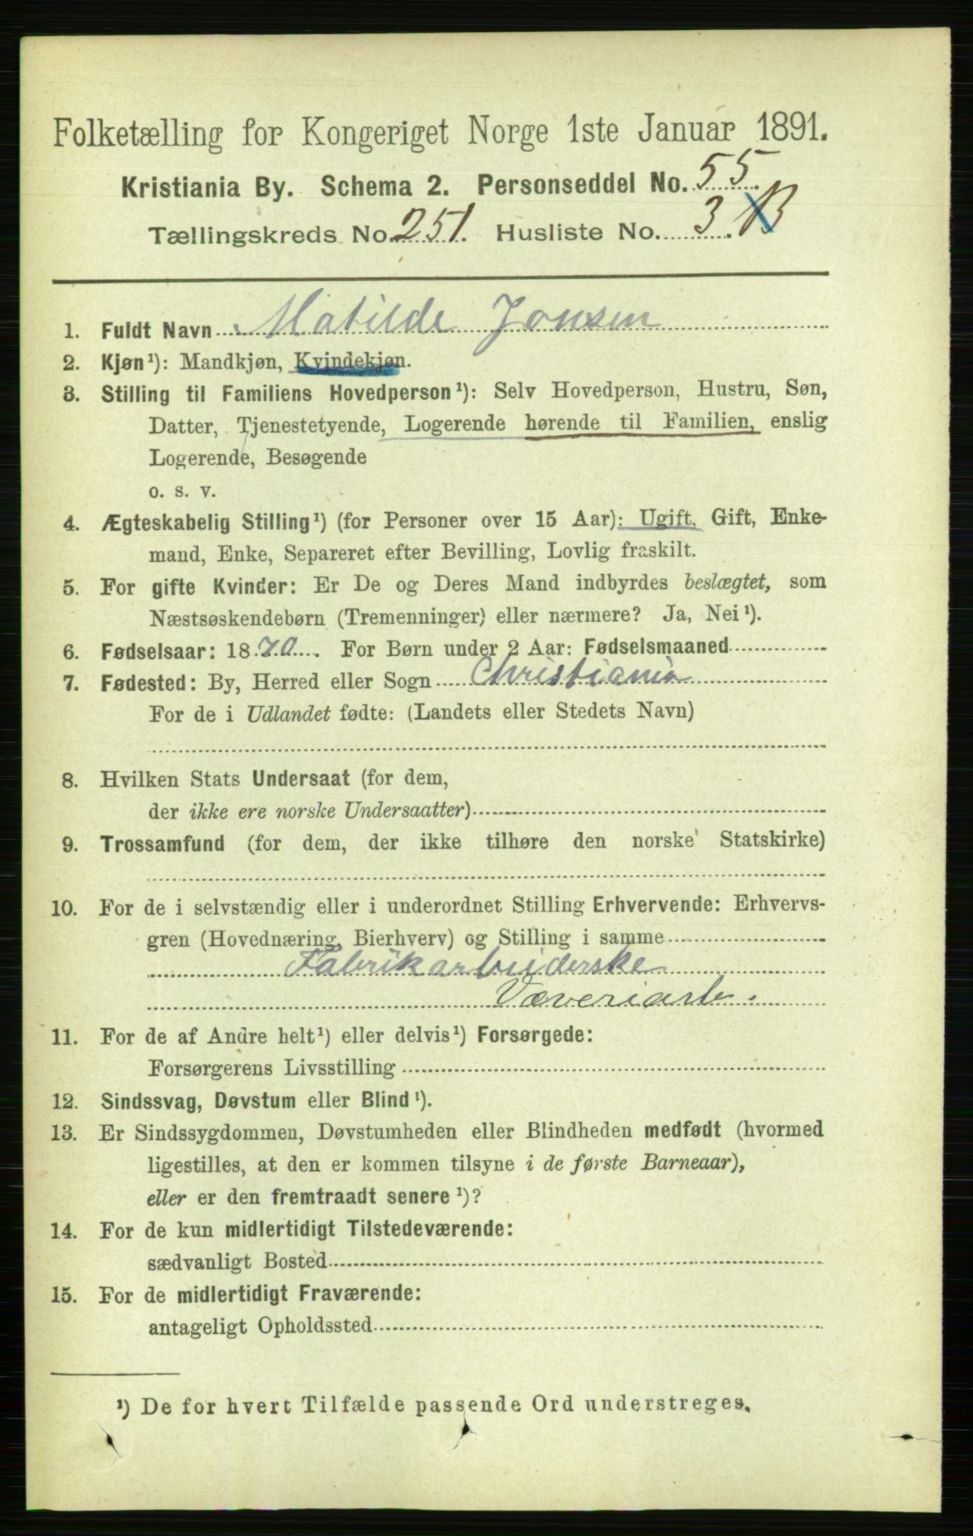 Folketælling for Kongeriget Norge 1ste Januar 1891.
Kristiania By. Schema 2. Personseddel No. 55.
Tællingskreds No. 251. Husliste No. 3. B
1. Fuldt Navn Matilde Jonsen
2. Kjøn¹): Mandkjøn, Kvindekjøn.
3. Stilling til Familiens Hovedperson¹): Selv Hovedperson, Hustru, Søn,
Datter, Tjenestetyende, Logerende hørende til Familien, enslig
Logerende, Besøgende
o. s. v.
4. Ægteskabelig Stilling¹) (for Personer over 15 Aar): Ugift, Gift, Enke-
mand, Enke, Separeret efter Bevilling, Lovlig fraskilt.
5. For gifte Kvinder: Er De og Deres Mand indbyrdes beslægtet, som
Næstsøskendebørn (Tremenninger) eller nærmere? Ja, Nei¹).
6. Fødselsaar: 1870. For Børn under 2 Aar: Fødselsmaaned
7. Fødested: By, Herred eller Sogn Christiania
For de i Udlandet fødte: (Landets eller Stedets Navn)
8. Hvilken Stats Undersaat (for dem,
der ikke ere norske Undersaatter)
9. Trossamfund (for dem, der ikke tilhøre den norske Statskirke)
10. For de i selvstændig eller i underordnet Stilling Erhvervende: Erhvervs-
gren (Hovednæring, Bierhverv) og Stilling i samme
Fabrikarbeiderske
Væveriarb.
11. For de af Andre helt¹) eller delvis¹) Forsørgede:
Forsørgerens Livsstilling
12. Sindssvag, Døvstum eller Blind¹).
13. Er Sindssygdommen, Døvstumheden eller Blindheden medfødt (hvormed
ligestilles, at den er kommen tilsyne i de første Barneaar),
eller er den fremtraadt senere¹)?
14. For de kun midlertidigt Tilstedeværende:
sædvanligt Bosted
15. For de midlertidigt Fraværende:
antageligt Opholdssted
¹) De for hvert Tilfælde passende Ord understreges.